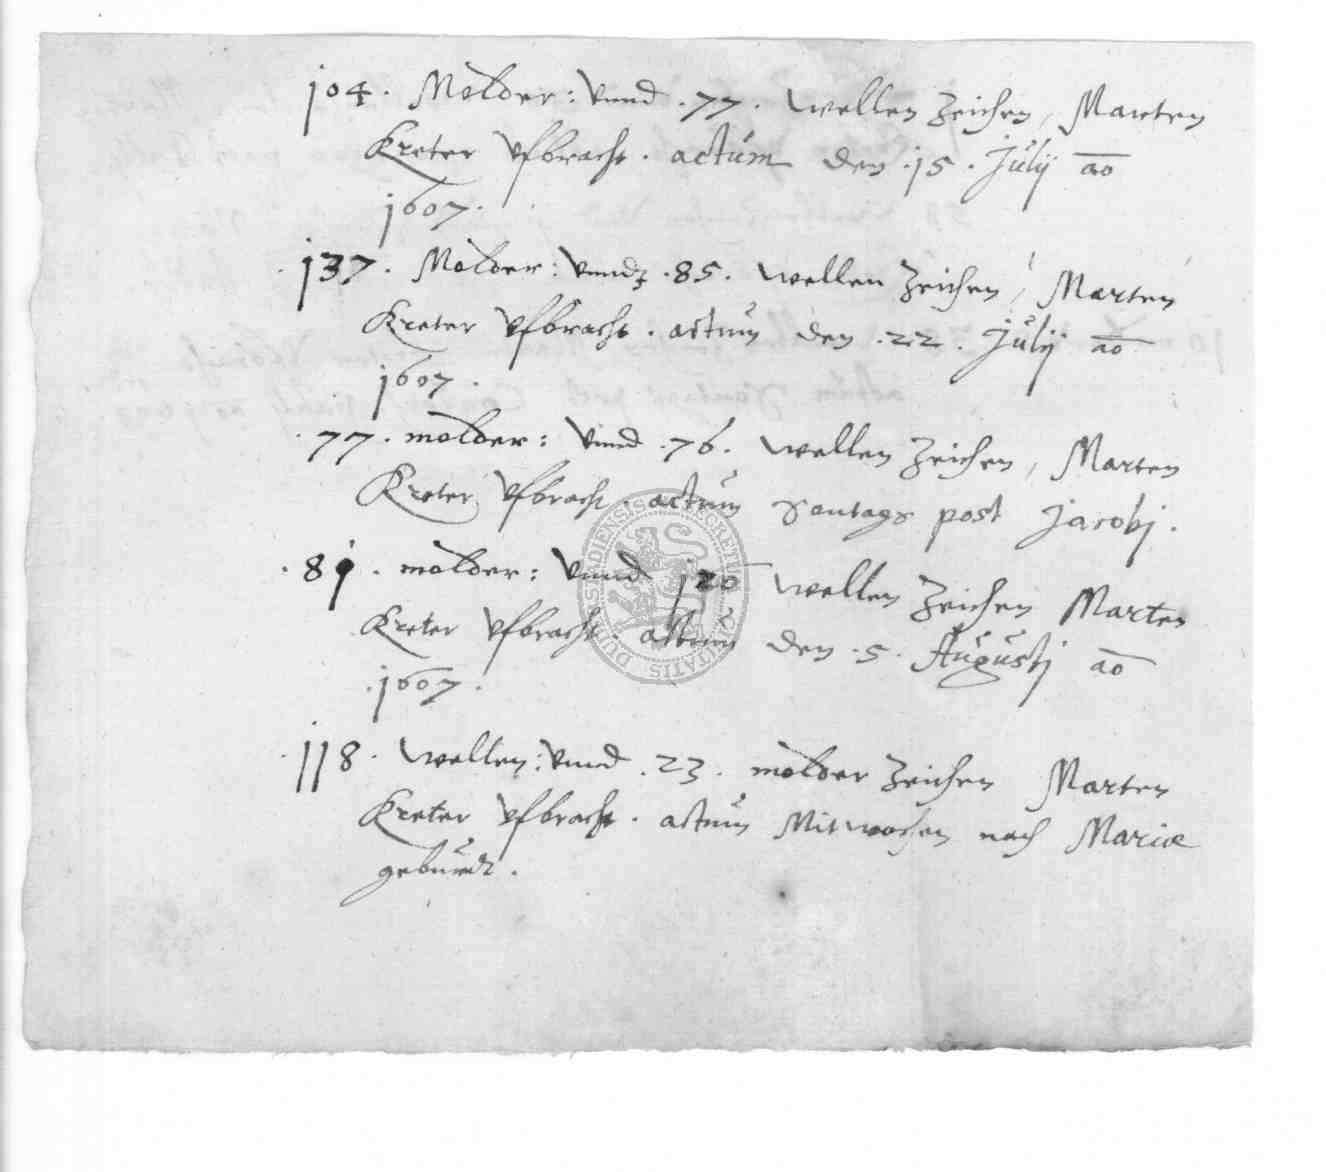 104. Molder: vnnd .77. wellen Zeichen, Marten
Kreter vfbracht. actum den .15. Julij ao
1607.
.137. Molder: vnnd .85. wellen Zeichen, Marten
Kreter vfbracht. actum den .22. Julij ao
1607.
.77. molder: vnnd .76. wellen Zeichen, Marten
Kreter vfbracht. actum Sontags post Jacobj.
.81. molder: vnnd 120 wellen Zeichen Marten
Kreter vfbracht. actum den .5. Augustj ao
.1607.
.118. wellen: vnnd .23. molder Zeichen Marten
Kreter vfbracht. actum Mitwochen nach Mariæ
geburdt.